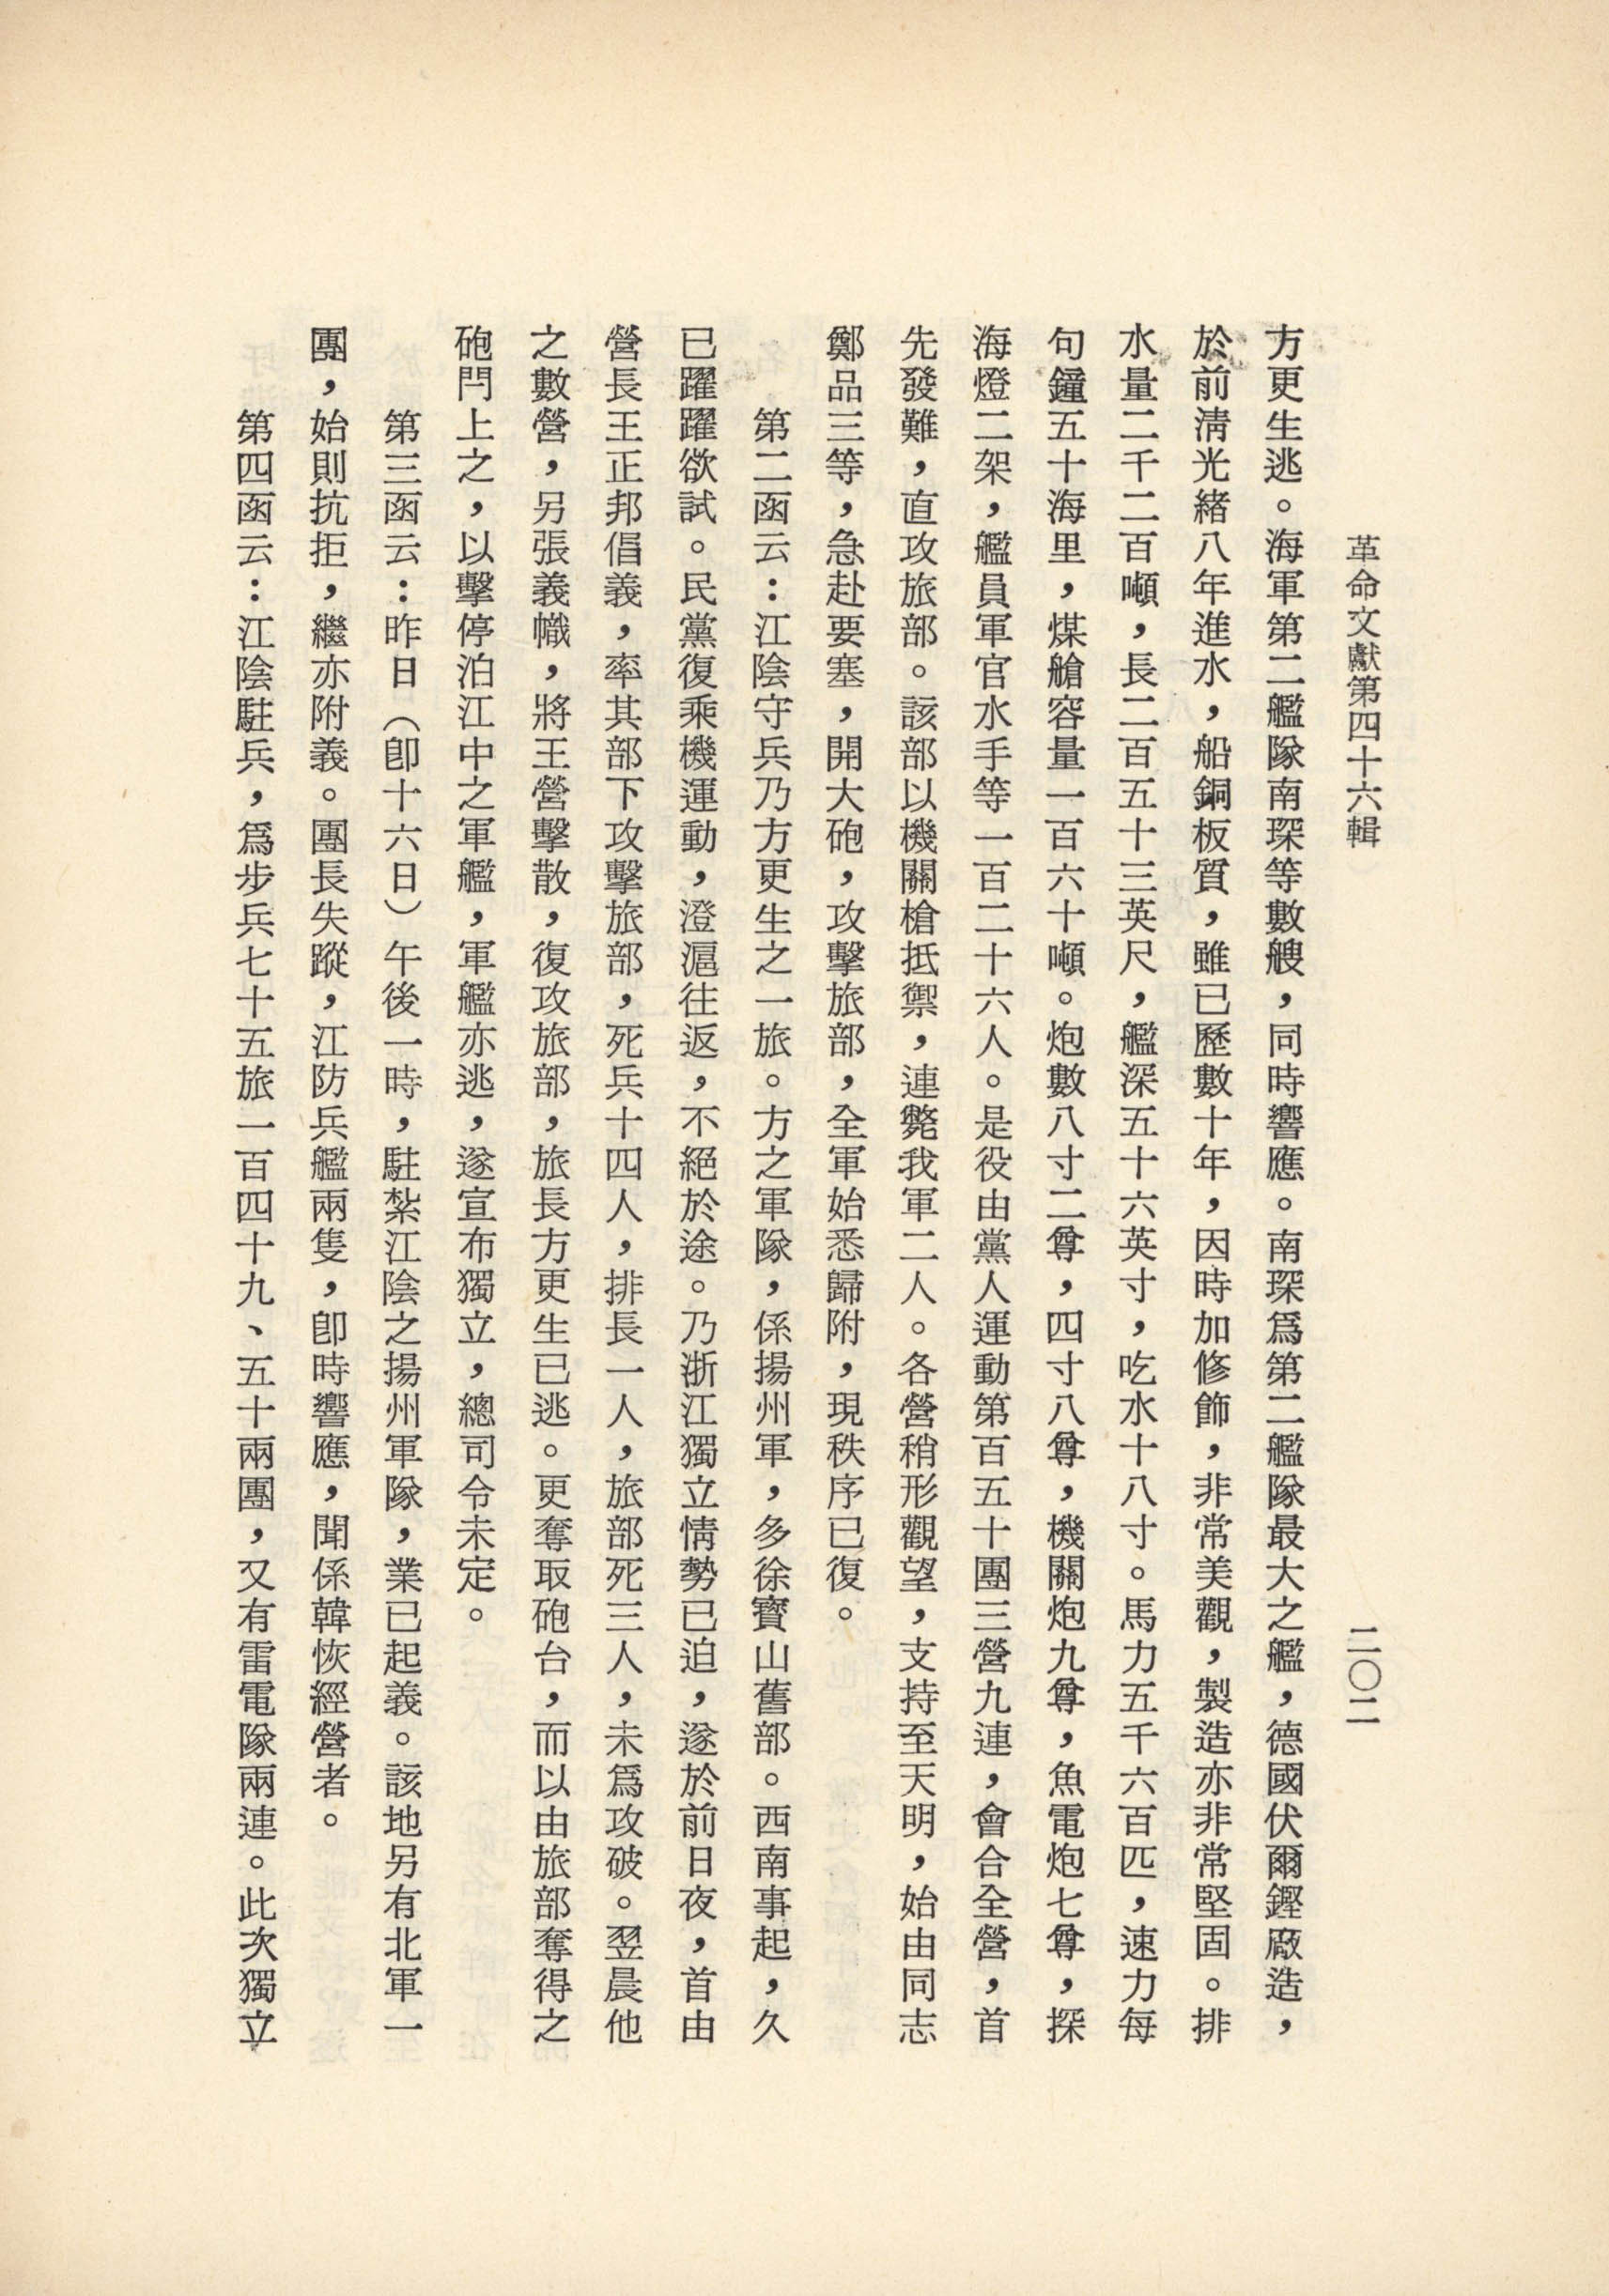 革命文獻第四十六輯
二〇二
方更生逃。海軍第二艦隊南琛等數艘，同時響應。南琛爲第二艦隊最大之艦，德國伏爾鏗廠造，
於前淸光緒八年進水，船銅板質，雖已歷數十年，因時加修飾，非常美觀，製造亦非常堅固。排
水量二千二百噸，長二百五十三英尺，艦深五十六英寸，吃水十八寸。馬力五千六百匹，速力每
句鐘五十海里，煤艙容量一百六十噸。炮數八寸二尊，四寸八尊，機關炮九尊，魚電炮七尊，探
海燈二架，艦員軍官水手等一百二十六人。是役由黨人運動第百五十團三營九連，會合全營，首
先發難，直攻旅部。該部以機關槍抵禦，連斃我軍二人。各營稍形觀望，支持至天明，始由同志
鄭品三等，急赴要塞，開大砲，攻擊旅部，全軍始悉歸附，現秩序已復。
第二函云：江陰守兵乃方更生之一旅。方之軍隊，係揚州軍，多徐寶山舊部。西南事起，久
已躍躍欲試。民黨復乘機運動，澄滬往返，不絕於途。乃浙江獨立情勢已迫，遂於前日夜，首由
營長王正邦倡義，率其部下攻擊旅部，死兵十四人，排長一人，旅部死三人，未爲攻破。翌晨他
之數營，另張義幟，將王營擊散，復攻旅部，旅長方更生已逃。更奪取砲台，而以由旅部奪得之
砲閂上之，以擊停泊江中之軍艦，軍艦亦逃，遂宣布獨立，總司令未定。
第三函云：昨日（卽十六日）午後一時，駐紮江陰之揚州軍隊，業已起義。該地另有北軍一
團，始則抗拒，繼亦附義。團長失蹤，江防兵艦兩隻，卽時響應，聞係韓恢經營者。
第四函云：江陰駐兵，爲步兵七十五旅一百四十九、五十兩團，又有雷電隊兩連。此次獨立